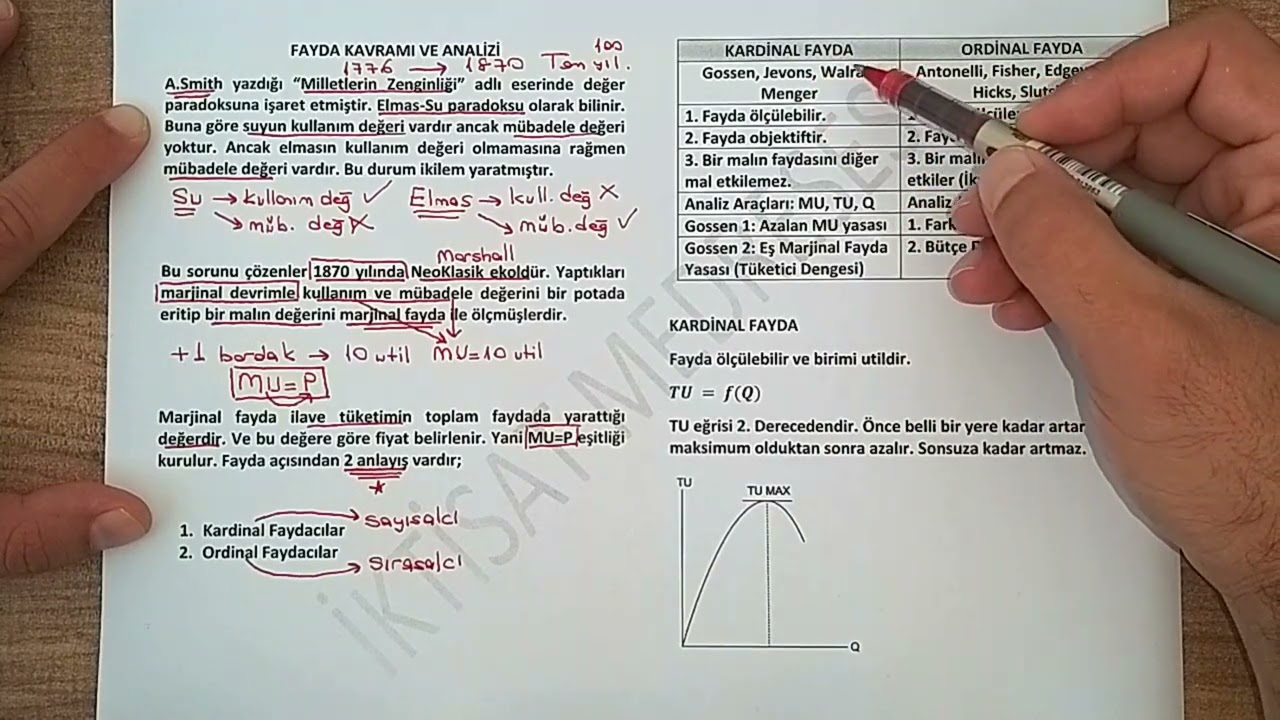 FAYDA KAVRAMI VE ANALİZİ
1776 → 1870
100
yıl.
A.Smith yazdığı “Milletlerin Zenginliği” adlı eserinde değer
paradoksuna işaret etmiştir. Elmas-Su paradoksu olarak bilinir.
Buna göre suyun kullanım değeri vardır ancak mübadele değeri
yoktur. Ancak elmasın kullanım değeri olmamasına rağmen
mübadele değeri vardır. Bu durum ikilem yaratmıştır.
Su → kullanım değ ✓
→ müb. değ X
Elmas → kull. değ X
→ müb. değ ✓
Marshall
Bu sorunu çözenler 1870 yılında NeoKlasik ekoldür. Yaptıkları
marjinal devrimle kullanım ve mübadele değerini bir potada
eritip bir malın değerini marjinal fayda ile ölçmüşlerdir.
+1 bardak → 10 util MU=10 util
MU=P
Marjinal fayda ilave tüketimin toplam faydada yarattığı
değerdir. Ve bu değere göre fiyat belirlenir. Yani MU=P eşitliği
kurulur. Fayda açısından 2 anlayış vardır;
1. Kardinal Faydacılar → sayısalcı
2. Ordinal Faydacılar → sırasalcı
KARDİNAL FAYDA
Gossen, Jevons,
Menger
1. Fayda ölçülebilir.
2. Fayda objektiftir.
3. Bir malın faydasını diğer
mal etkilemez.
Analiz Araçları: MU, TU, Q
Gossen 1: Azalan MU yasası
Gossen 2: Eş Marjinal Fayda
Yasası (Tüketici Dengesi)
ORDİNAL FAYDA
Antonelli, Fisher,
Hicks,
2.
3. Bir
etkiler
Analiz
1.
2. Bütçe
KARDİNAL FAYDA
Fayda ölçülebilir ve birimi utildir.
TU = f(Q)
TU eğrisi 2. Derecedendir. Önce belli bir yere kadar artar
maksimum olduktan sonra azalır. Sonsuza kadar artmaz.
TU
TU MAX
Q
İKTİSAT MEDRESESİ